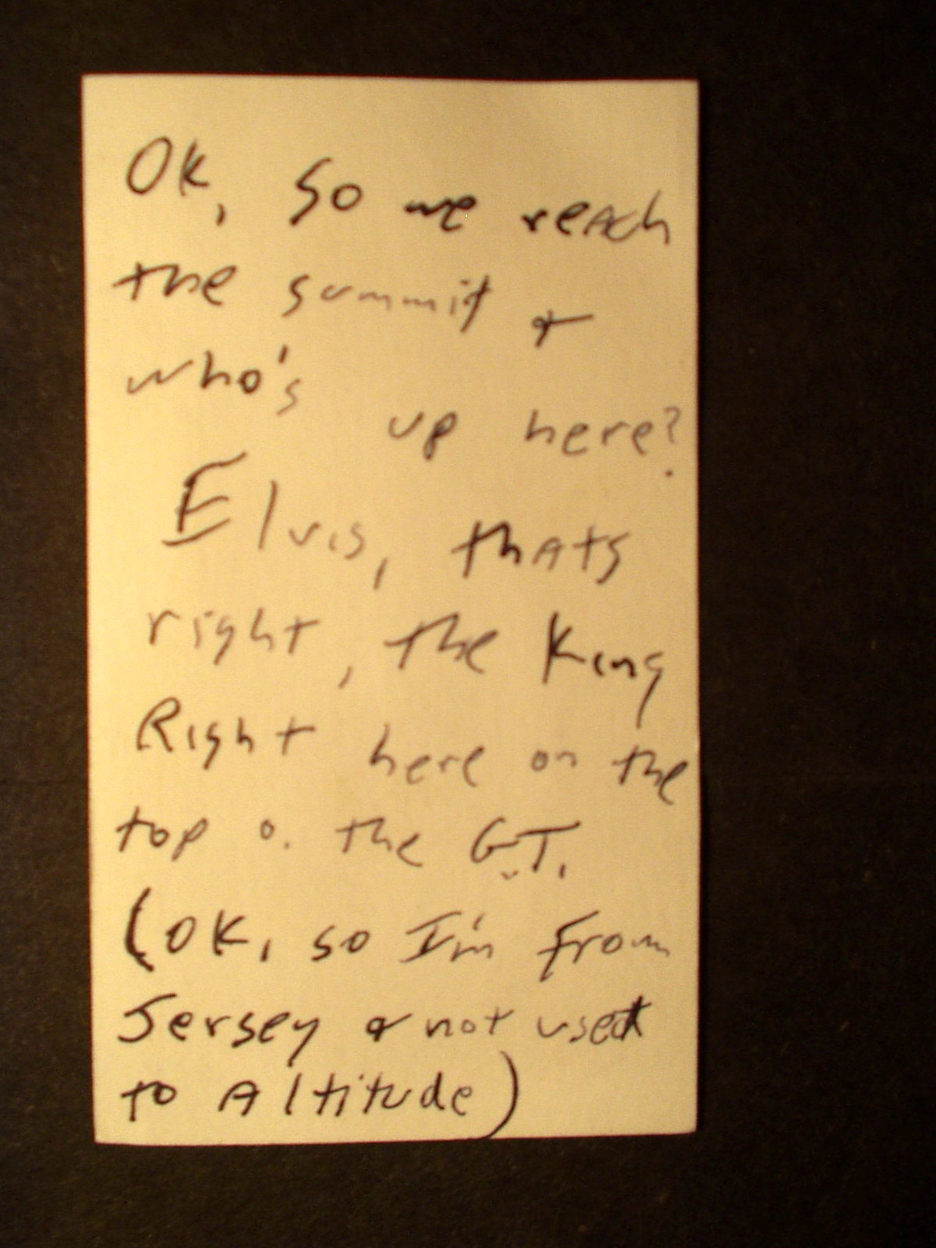 OK, So we reach
the summit &
who's up here?
Elvis, thats
right, the King
Right here on the
top o. the G.T.
(OK, so I'm from
Jersey & not used
to Altitude)